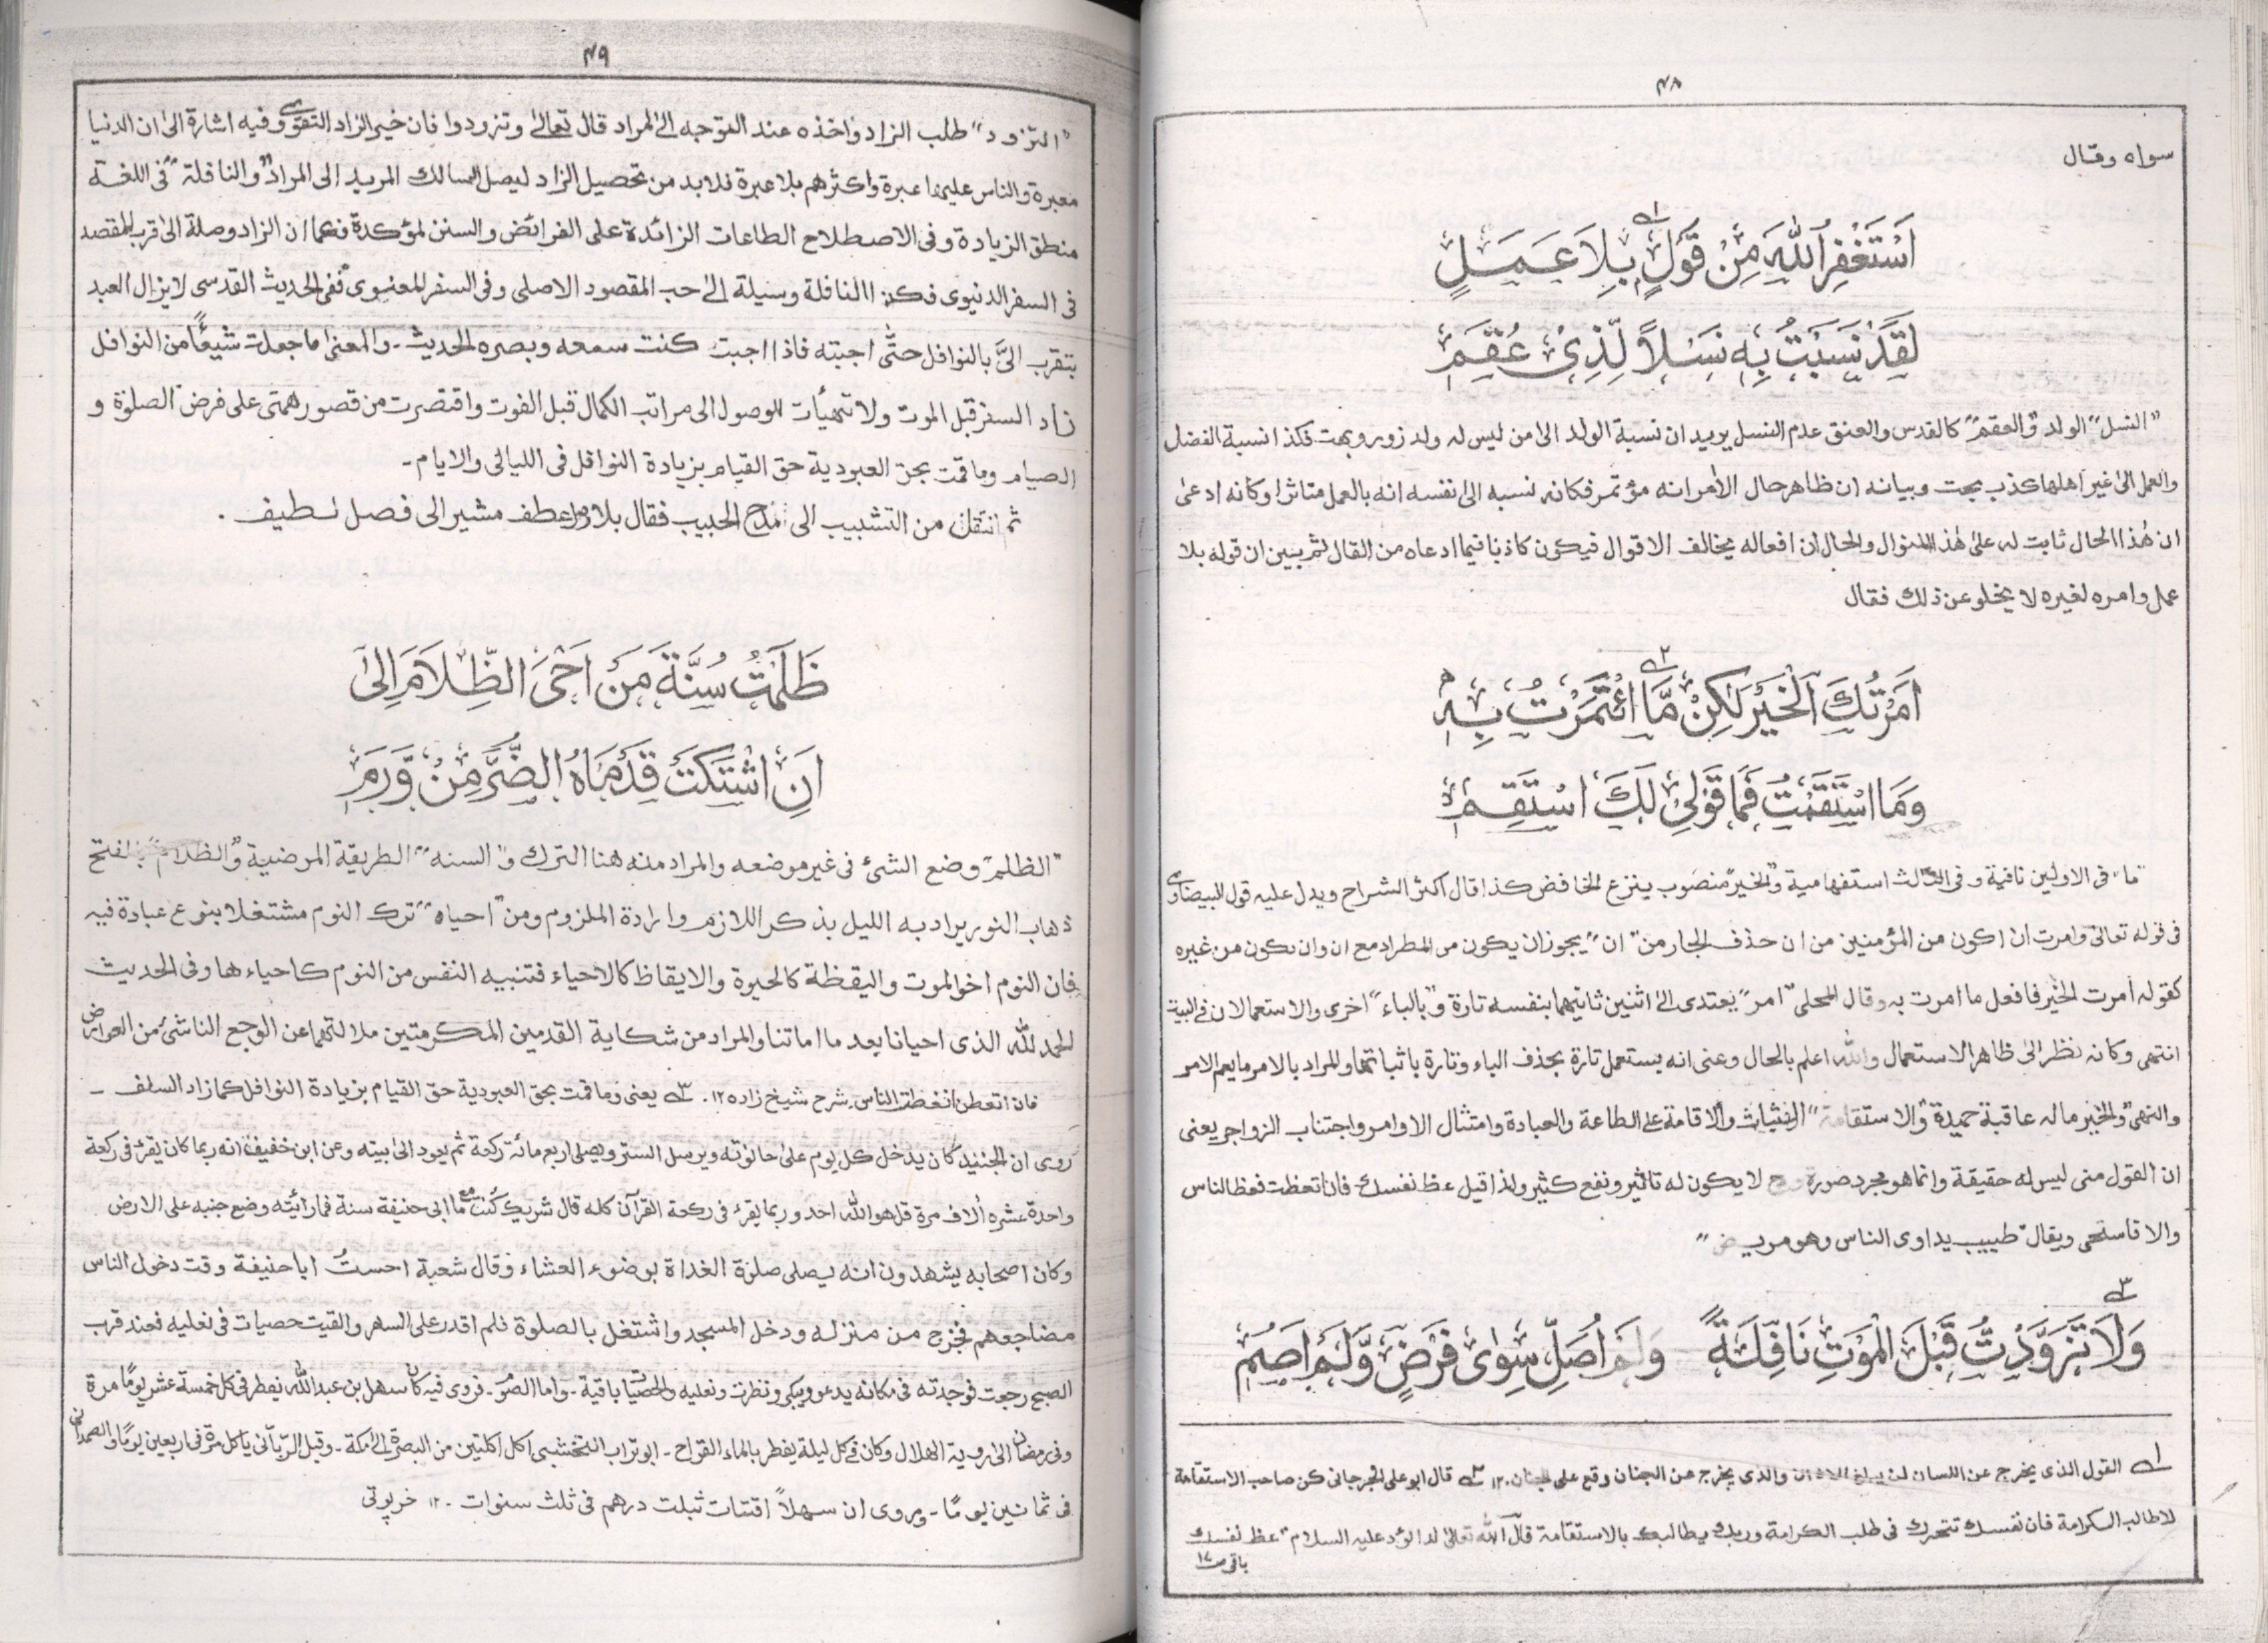 ۴۸
سواه وقال
اَسْتَغْفِرُ اللّٰهَ مِنْ قَوْلٍ بِلَا عَمَلٍ
لَقَدْ نَسَبْتُ بِهٖ نَسْلًا لِّذِیْ عُقُمٖ
"النسل" الولد "والعقم" كالقدس والعنق عدم النسل يريد ان نسبة الولد الى من ليس له ولد زور وبهت فكذا نسبة الفضل
والعمل الى غير اهلها كذب بحت وبيانه ان ظاهر حال الأمر انه مؤتمر فكانه نسبه الى نفسه انه بالعمل متاثر او كانه ادعى
ان هٰذا الحال ثابت له على هٰذا المنوال والحال ان افعاله يخالف الاقوال فيكون كاذبا فيما ادعاه من القال ثم بين ان قوله بلا
عمل وامره لغيره لا يخلو عن ذلك فقال
اَمَرْتُكَ الْخَيْرَ لٰكِنْ مَّا ائْتَمَرْتُ بِهٖ
وَمَا اسْتَقَمْتُ فَمَا قَوْلِیْ لَكَ اسْتَقِمٖ
"ما" فى الاولين نافية وفى الثالث استفهامية "والخير" منصوب بنزع الخافض كذا قال اكثر الشراح ويدل عليه قول البيضاوى
فى قوله تعالى وامرت ان اكون من المؤمنين من ان حذف الجار من "ان" يجوز ان يكون من المطراد مع ان وان يكون من غيره
كقوله أمرت الخير فافعل ما امرت به وقال المحلى "امر" يعتدى الى اثنين ثانيهما بنفسه تارة و"بالباء" اخرى والاستعمالان فى البيت
انتهى وكانه نظر الى ظاهر الاستعمال والله اعلم بالحال وعنى انه يستعمل تارة بحذف الباء وتارة باثباتها والمراد بالامر ما يعم الامر
والنهى "والخير ماله عاقبة حميدة "والاستقامة" الثبات والاقامة على الطاعة والعبادة وامتثال الاوامر واجتناب الزواجر يعنى
ان القول منى ليس له حقيقة وانما هو مجرد صورة وح لا يكون له تاثير ونفع كثير ولذا قيل عظ نفسك فان تعظت فعظ الناس
والا فاستحى ويقال "طبيب يداوى الناس وهو مريض"
وَلَا تَزَوَّدْتُ قَبْلَ الْمَوْتِ نَافِلَةً وَلَمْ اُصَلِّ سِوٰى فَرْضٍ وَّلَمْ اَصُمٖ
۱ القول الذى يخرج عن اللسان لن يبلغ الاذان والذى يخرج عن الجنان وقع على الجنان ۱۲ ۲ قال ابو على الجرجانى كن صاحب الاستقامة
لا طالب الكرامة فان نفسك تتحرك فى طلب الكرامة وربك يطالبك بالاستقامة قال الله تعالى لداؤد عليه السلام "عظ نفسك
باقى ص ۱۷
۴۹
"التزود" طلب الزاد واخذه عند التوجه الى المراد قال تعالى وتزودوا فان خير الزاد التقوى وفيه اشارة الى ان الدنيا
معبرة والناس عليها عبرة واكثرهم بلا عبرة فلابد من تحصيل الزاد ليصل السالك المريد الى المراد "والنافلة" فى اللغة
منطق الزيادة وفى الاصطلاح الطاعات الزائدة على الفرائض والسنن المؤكدة فكما ان الزاد وصلة الى قرب المقصد
فى السفر الدنيوى فكذا النافلة وسيلة الى حب المقصود الاصلى وفى السفر المعنوى ففى الحديث القدسى لا يزال العبد
يتقرب الىّ بالنوافل حتّٰى احبته فاذا احببت كنت سمعه وبصره الحديث - والمعنى ما جعلت شيئًا من النوافل
زاد السفر قبل الموت ولا تهيأت للوصول الى مراتب الكمال قبل الفوت واقتصرت من قصور همتى على فرض الصلوة و
الصيام وما قمت بحق العبودية حق القيام بزيادة النوافل فى الليالى والايام -
ثم انتقل من التشبيب الى مدح الحبيب فقال بلا عطف مشير الى فصل لطيف .
ظَلَمْتُ سُنَّةَ مَنْ اَحْيَ الظَّلَامَ اِلٰى
اَنِ اشْتَكَتْ قَدَمَاهُ الضُّرَّ مِنْ وَّرَمٖ
"الظلم" وضع الشئ فى غير موضعه والمراد منه هنا الترك و"السنه" الطريقة المرضية "والظلام" بالفتح
ذهاب النور يراد به الليل بذكر اللازم وارادة الملزوم ومن "احياه" ترك النوم مشتغلا بنوع عبادة فيه
فان النوم اخو الموت واليقظة كالحيوة والايقاظ كالاحياء فتنبيه النفس من النوم كاحياءها وفى الحديث
الحمد لله الذى احيانا بعد ما اماتنا والمراد من شكاية القدمين المكرمتين ملالتهما عن الوجع الناشئ من العوارض
فان اتعظن انعظت الناس شرح شيخ زاده ۱۲ . ۳ يعنى وما قمت بحق العبودية حق القيام بزيادة النوافل كما زاد السلف -
روى ان الجنيد كان يدخل كل يوم على حانوته ويرسل الستر ويصلى اربع مائة ركعة ثم يعود الى بيته وعن ابن خفيف انه ربما كان يقرء فى ركعة
واحدة عشره الاف مرة قل هو الله احد وربما يقرء فى ركعة القرآن كله قال شريك كنت مع ابى حنيفة سنة فما رأيته وضع جنبه على الارض
وكان اصحابه يشهدون انه يصلى صلوة الغداة بوضوء العشاء وقال شعبة احست ابا حنيفة وقت دخول الناس
مضاجعهم فخرج من منزله ودخل المسجد واشتغل بالصلوة فلم اقدر على السهر والقيت حصيات فى نعليه فعند قرب
الصبح رجعت فوجدته فى مكانه يدعو ويبكى ونظرت ونعليه والحصيات باقية - واما الصوم - فروى فيه كان سهل بن عبد الله يفطر فى كل خمسة عشر يومًا مرة
وفى رمضان الى روية الهلال وكان فى كل ليلة يفطر بالماء القراح - ابو تراب النخشبى اكل اكلتين من البصرة الى مكة - وقيل الربّانى ياكل مرة فى اربعين يومًا والصمدانى
فى ثمانين يومًا - وروى ان سهلًا اقتات بثلث درهم فى ثلث سنوات - ۱۲ خرپوتى